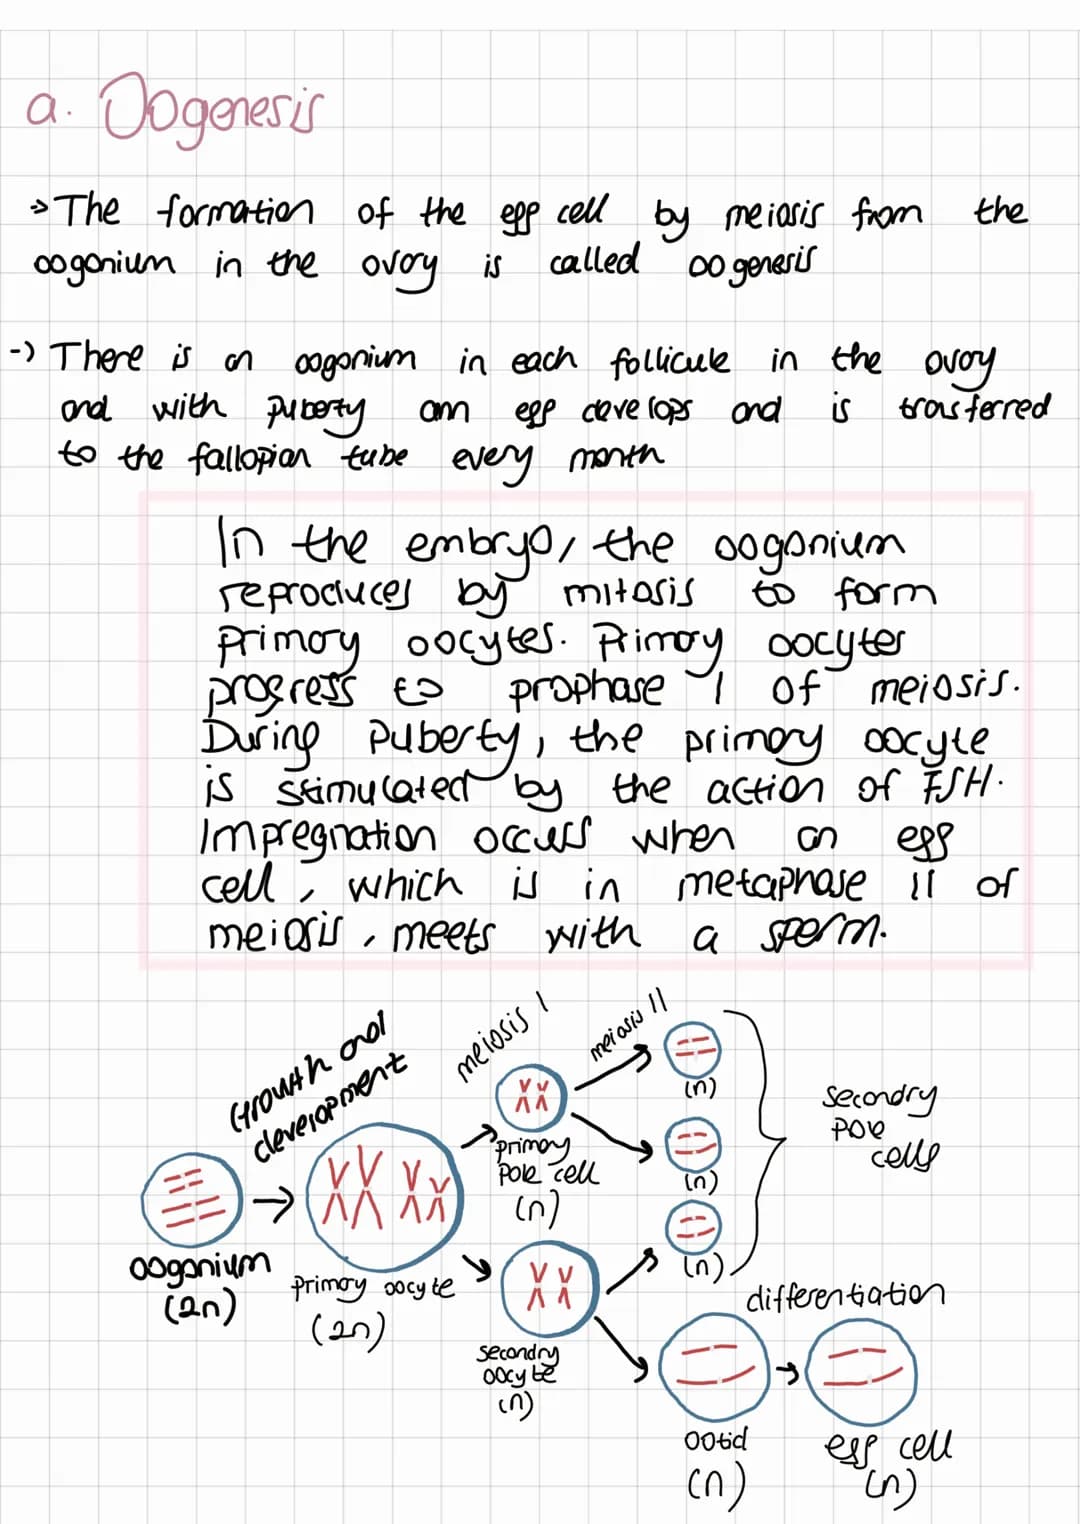 a. Oogenesis
→ The formation of the egg cell by meiosis from the
oogonium in the ovary is called oogenesis
→ There is an oogonium in each follicule in the ovary
and with puberty amn egg develops and is trasferred
to the fallopian tube every month
In the embryo, the oogonium
reproduces by mitosis to form
primary oocytes. Primary oocytes
progress to prophase I of meiosis.
During Puberty, the primary oocyte
is stimulated by the action of FSH.
Impregnation occurs when an egg
cell, which is in metaphase II of
meiosis, meets with a sperm.
Growth and
development
meiosis I
meiosis II
oogonium
(2n)
primary oocyte
(2n)
primary
pole cell
(n)
secondry
oocyte
(n)
(n)
(n)
(n)
secondry
pole
cells
differentiation
ootid
(n)
egg cell
(n)